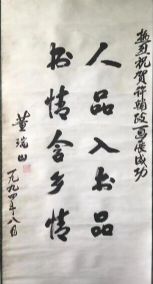 热烈祝贺许铺改画展成功
人品入书品
抒情含乡情
董瑞山
一九九四年八月